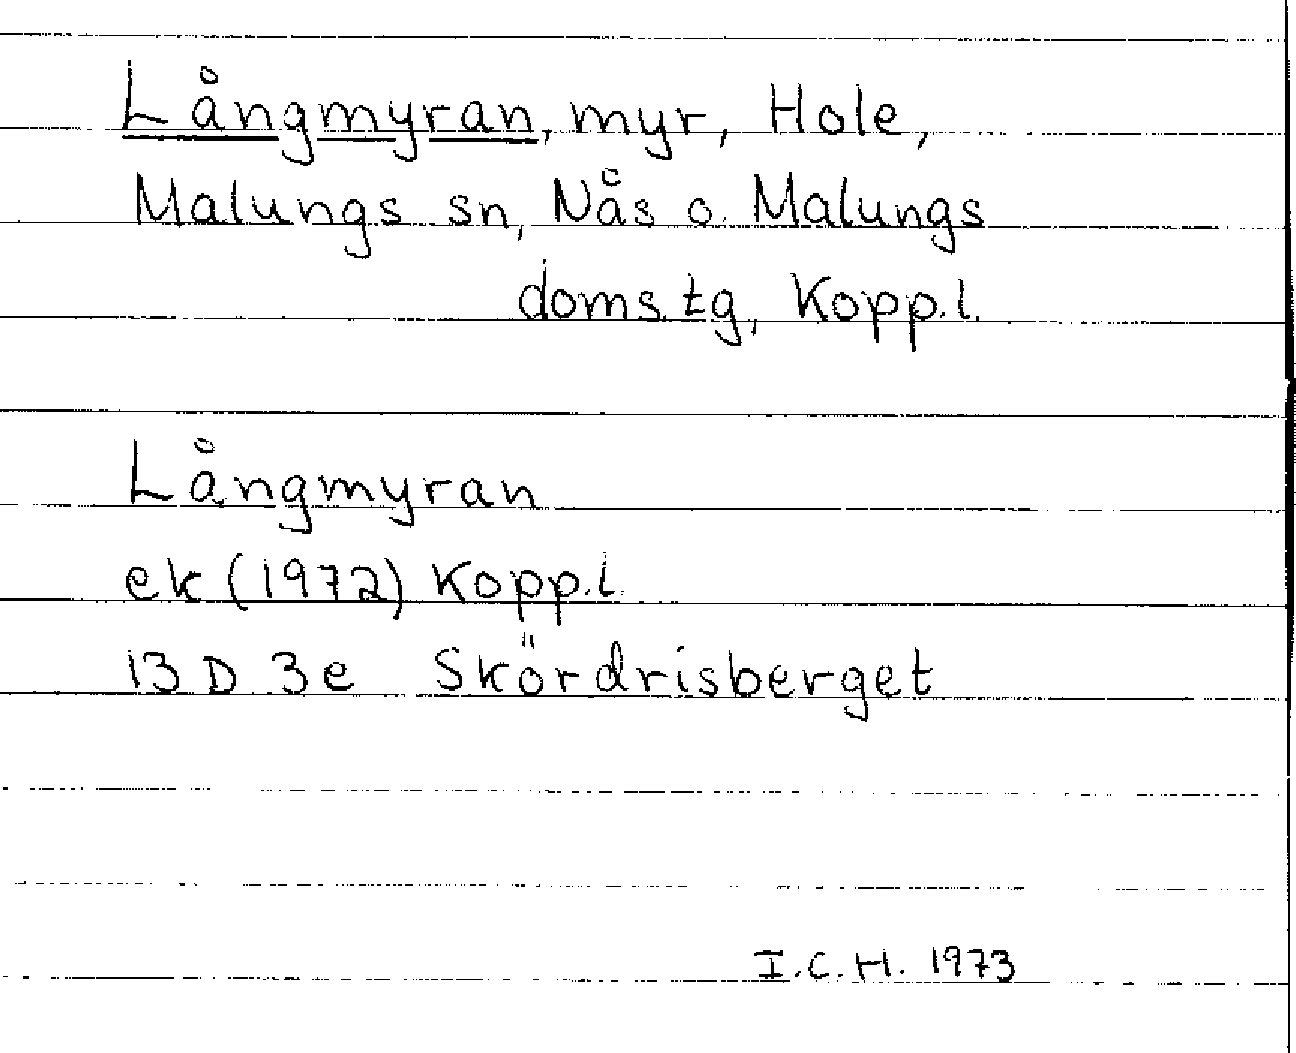 Långmyran, myr, Hole,
Malungs sn, Nås o. Malungs
doms.tg, Kopp.l.
Långmyran
ek (1972) Kopp.l.
13 D 3e Skördrisberget
I.C.H. 1973